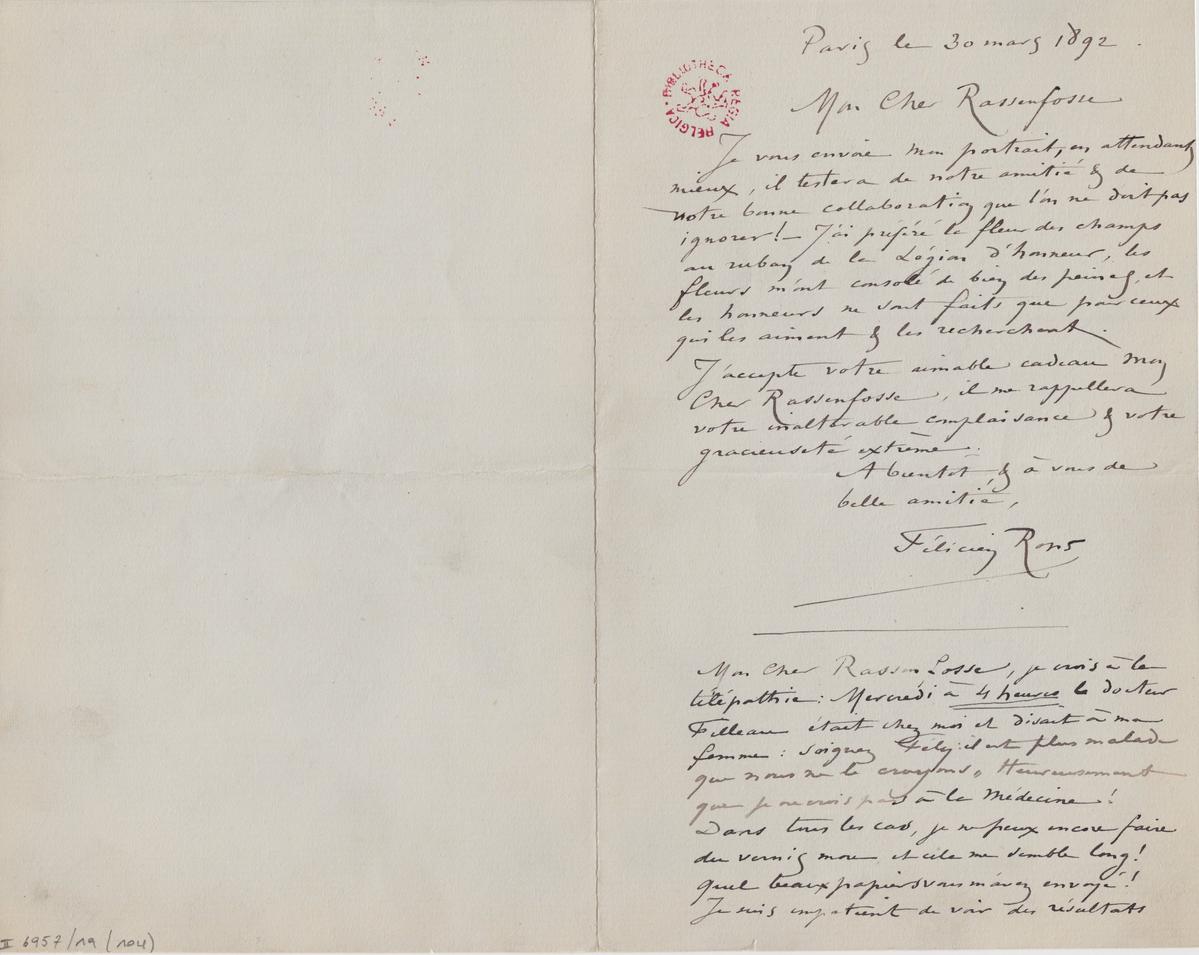 Paris le 30 mars 1892.
BIBLIOTHECA REGIA BELGICA
Mon Cher Rassenfosse
Je vous envoie mon portrait, en attendant
mieux, il testera de notre amitié & de
notre bonne collaboration que l'on ne doit pas
ignorer! – J'ai préféré la fleur des champs
au ruban de la Légion d'honneur, les
fleurs m'ont consolé de bien des peines, et
les honneurs ne sont faits que pour ceux
qui les aiment & les recherchent.
J'accepte votre aimable cadeau mon
Cher Rassenfosse, il me rappellera
votre inaltérable complaisance & votre
gracieuseté extrême.
A bientot & à vous de
belle amitié,
Félicien Rops
Mon Cher Rassenfosse, je crois à la
télépathie: Mercredi à 4 heures le docteur
Filleau était chez moi et disait à ma
femme: soignez Fély: il est plus malade
que nous ne le croyons. Heureusement
que je ne crois pas à la Médecine!
Dans tous les cas, je ne peux encore faire
du vernis mou et cela me semble long!
Quel beaux papiers vous m'avez envoyé!
Je suis impatient de voir des résultats
II 6957/19 (104)